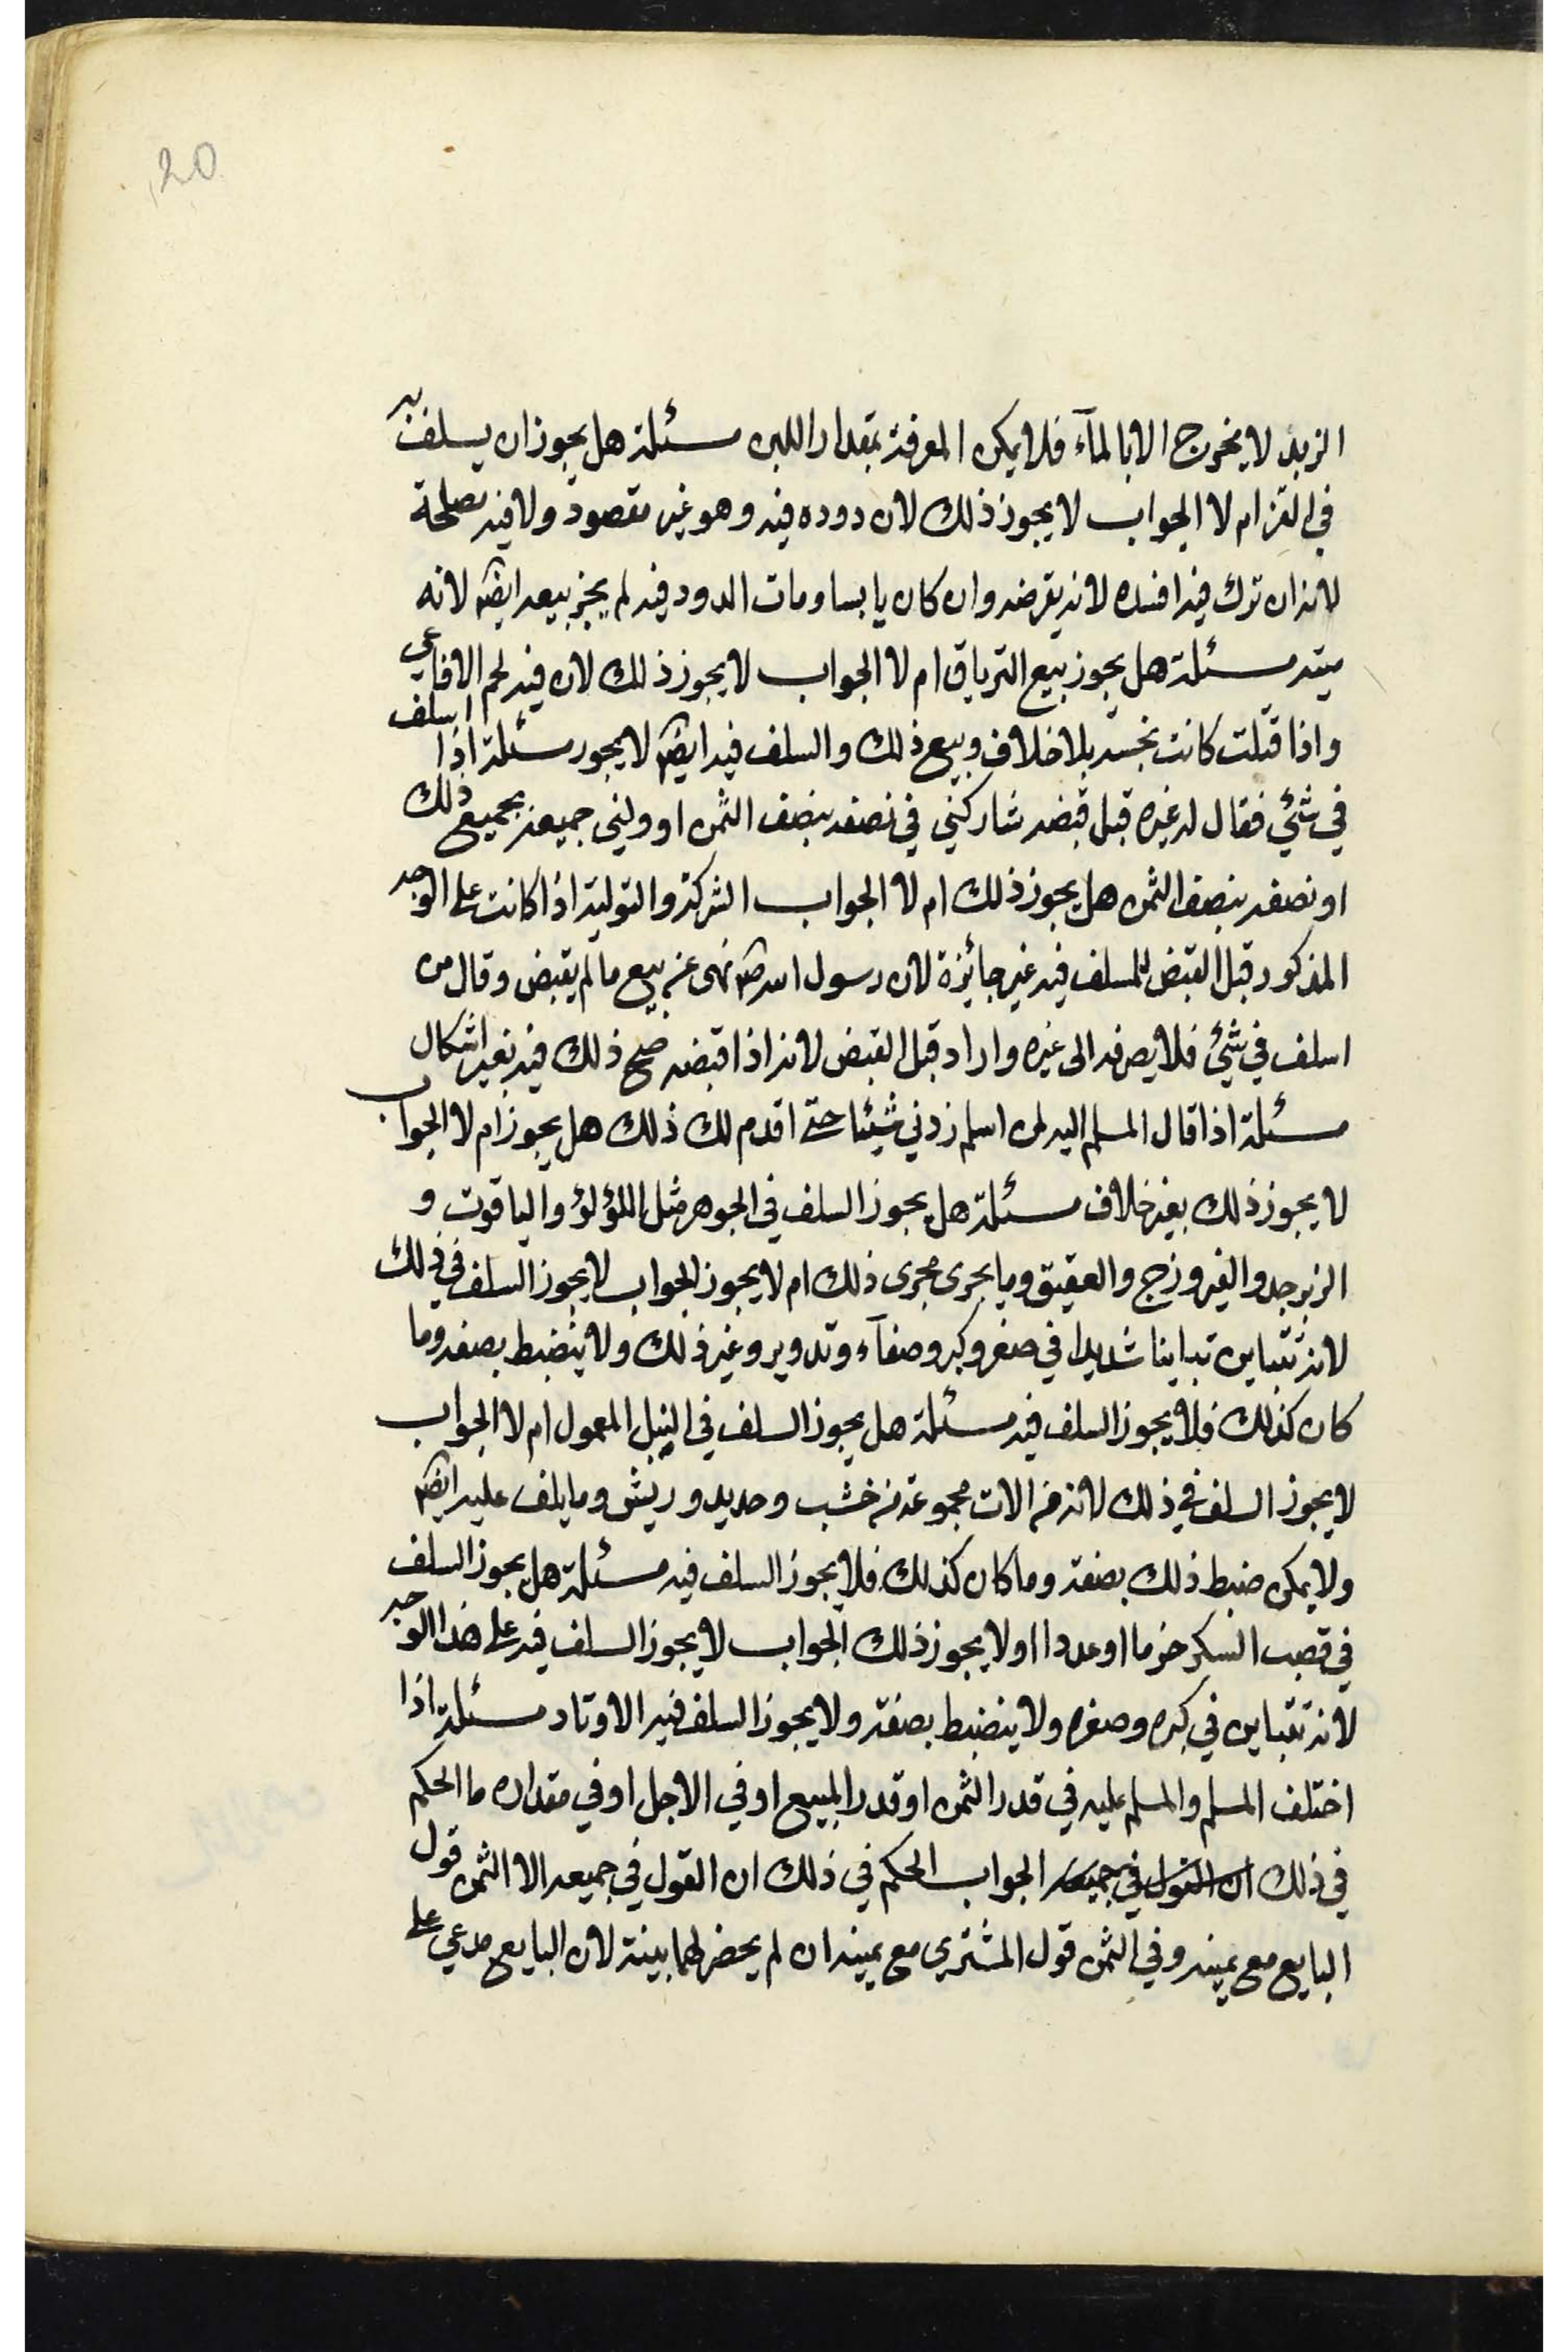 20
الزبد لا يخرج الا بالمآء فلا يمكن المعرفة بمقدار اللبن مسئلة هل يجوز ان يسلف
في القز ام لا الجواب لا يجوز ذلك لان دوده فيه وهو غير مقصود ولا فيه مصلحة
لانه ان ترك فيه افسده لانه يقرضه وان كان يابسا ومات الدود فيه لم يجز بيعه ايضا لانه
ميتة مسئلة هل يجوز بيع الترياق ام لا الجواب لا يجوز ذلك لان فيه لحم الافاعي
واذا قتلت كانت نجسة بلا خلاف وبيع ذلك والسلف فيه ايضا لا يجوز مسئلة اذا اسلف
في شئي فقال له غيره قبل قبضه شاركني في نصفه بنصف الثمن او ولني جميعه بجميع ذلك
او نصفه بنصف الثمن هل يجوز ذلك ام لا الجواب الشركة والتولية اذا كانت على الوجه
المذكور قبل القبض للمسلف فيه غير جائزة لان رسول الله ص نهى عن بيع ما لم يقبض وقال من
اسلف في شئي فلا يصرفه الى غيره واراد قبل القبض لانه اذا قبضه صح ذلك فيه بغير اشكال
مسئلة اذا قال المسلم اليه لمن اسلم زدني شيئا حتى اقدم لك ذلك هل يجوز ام لا الجواب
لا يجوز ذلك بغير خلاف مسئلة هل يجوز السلف في الجوهر مثل اللؤلؤ والياقوت و
الزبرجد والفيروزج والعقيق وما يجرى مجرى ذلك ام لا يجوز الجواب لا يجوز السلف في ذلك
لانه تتباين تباينا شديدا في صغر وكبر وصفآء وتدوير وغير ذلك ولا ينضبط بصفه وما
كان كذلك فلا يجوز السلف فيه مسئلة هل يجوز السلف في النبل المعمول ام لا الجواب
لا يجوز السلف في ذلك لانه من الات مجموعة من خشب وحديد وريش وما يلف عليه ايضا
ولا يمكن ضبط ذلك بصفة وما كان كذلك فلا يجوز السلف فيه مسئلة هل يجوز السلف
في قصب السكر حزما او عددا او لا يجوز ذلك الجواب لا يجوز السلف فيه على هذا الوجه
لانه تتباين في كبره وصغره ولا ينضبط بصفة ولا يجوز السلف فيه الاوتاد مسئلة اذا
اختلف المسلم والمسلم عليه في قدر الثمن او قدر المبيع او في الاجل او في مقداره ما الحكم
في ذلك ان القول في جميعه الجواب الحكم في ذلك ان القول في جميعه الا الثمن قول
البايع مع يمينه وفي الثمن قول المشتري مع يمينه ان لم يحضر لهما بينة لان البايع مدعي على